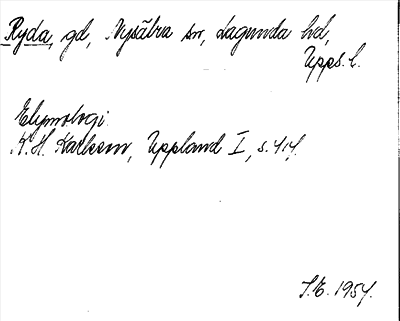 Ryda, gd, Nysätra sn, Lagunda hd,
Upps. l.
Etymologi.
K. H. Karlsson, Uppland I, s. 414.
S.E. 1954.